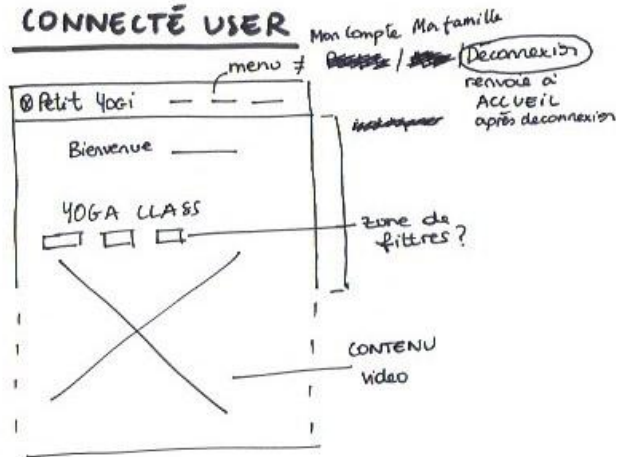 CONNECTÉ USER
menu ≠
Mon Compte Ma famille
/ / Déconnexion
renvoie à
ACCUEIL
après deconnexion
Petit Yogi
Bienvenue
YOGA CLASS
zone de
filtres ?
CONTENU
video